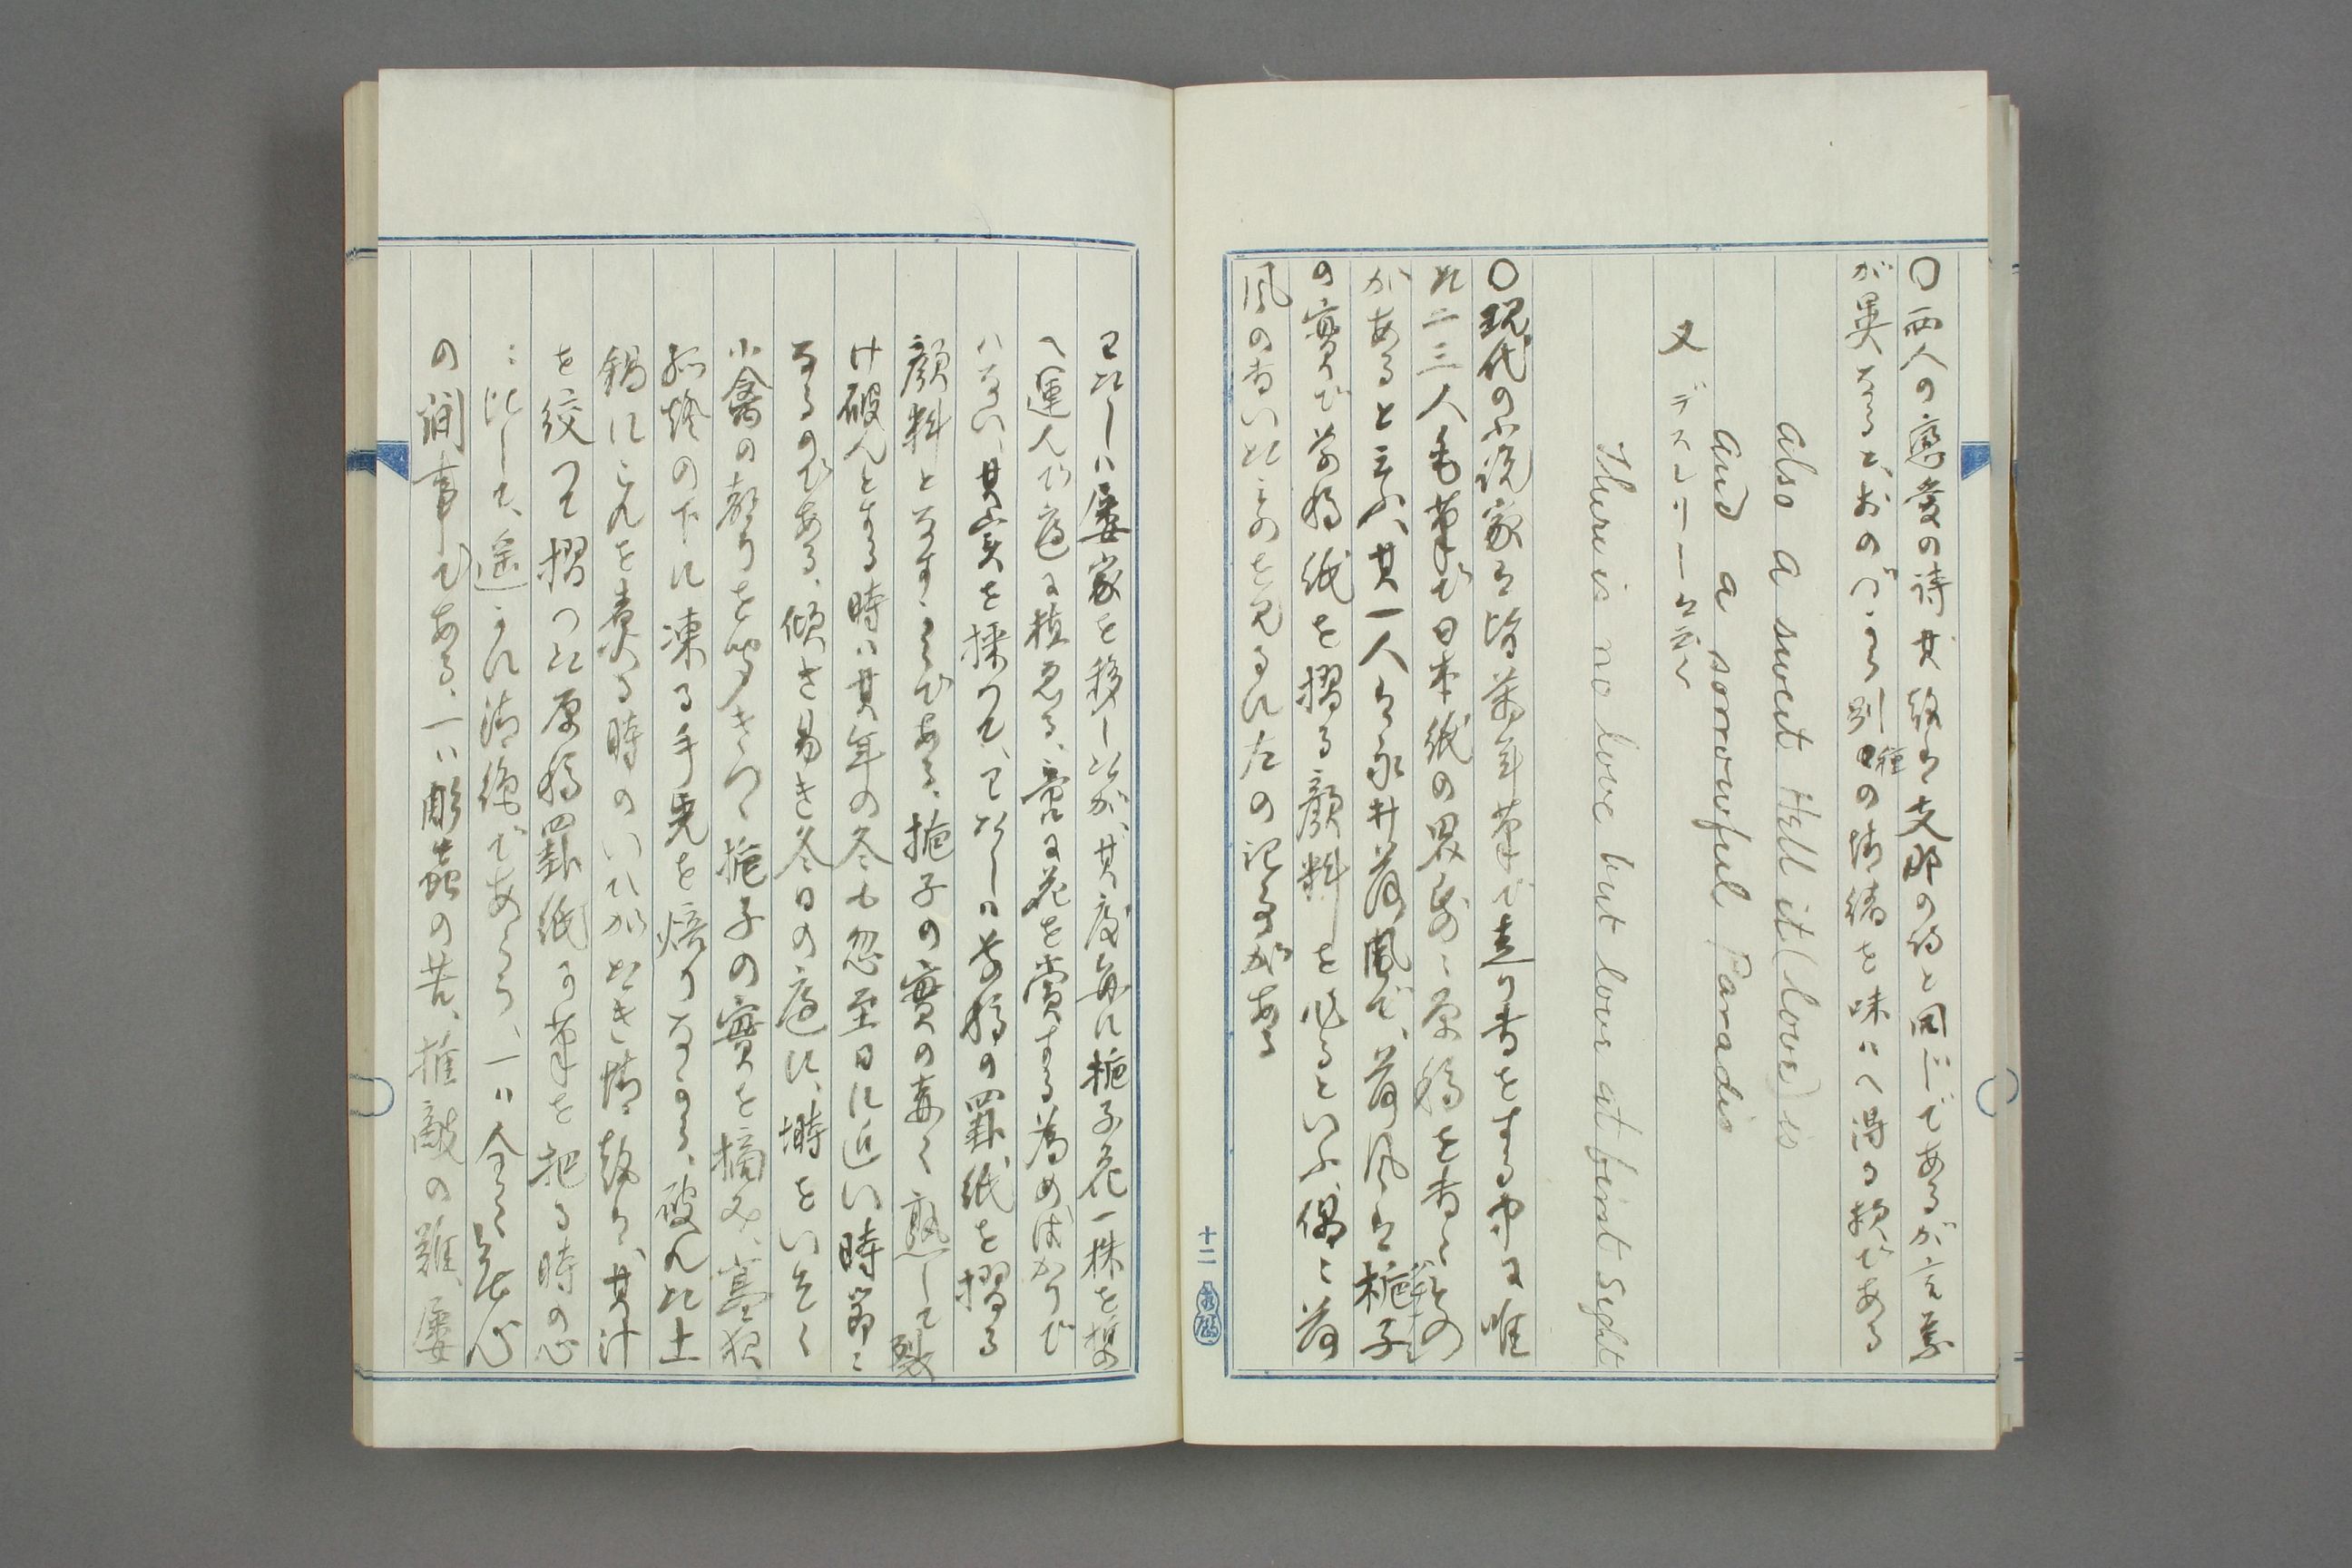 〇両人の戀愛の詩其趣は支那の詩と同じであるが言葉
が異なると、おのづから別種の情緒を味はへ得る様である
also a sweet Hell it (love) is
and a sorrowful Paradis
又デスレリーは云ふ
There is no love but love at first sight
〇現代の小説家は皆萬年筆で走り書をする中に唯
だ二三人毛筆で日本紙の罫紙に原稿を書くもの
があると云ふ、其一人は永井荷風で、荷風は梔子
の實で草稿紙を摺る顔料を作るといふ、偶に荷
風の書いたものを見るに左の記事がある
十二
わたしは屡家を移したが、其度毎に梔子花一株を携
へ運んで庭に植ゑる、啻に花を賞する為めばかりで
はない、其実を採つて、わたしは草稿の罫紙を摺る
顔料となすからである、梔子の實の赤く熟して裂
け破れんとする時は其年の冬も忽至日に近い時節に
なるのである、傾き易き冬日の庭に、塒をいそぐ
小禽の聲を聞きつゝ梔子の實を摘み、寒夜
孤燈の下に凍る手先を焙りながら、破れた土
鍋にこれを煮る時のいひがたき情趣は、其汁
を絞つて摺つた原稿罫紙に筆を把る時の心
に比して、遥かに清絶であらう、一は全く無心
の閑事である、一は彫蟲の苦、推敲の難、屡